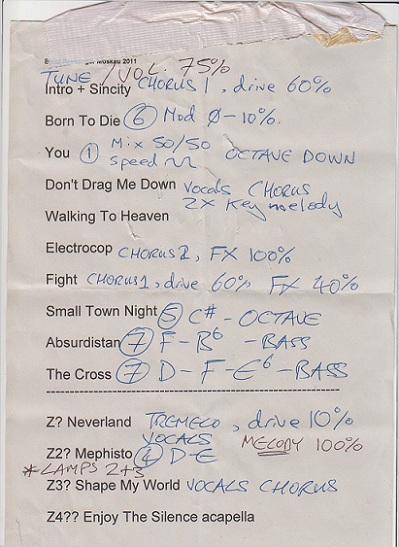 Moskau 2011
TUNE / VOL. 75%
Intro + Sincity CHORUS 1, drive 60%
Born To Die ⑥ Mod Ø-10%.
You ① Mix 50/50 OCTAVE DOWN
Speed
Don't Drag Me Down vocals CHORUS
2X Key melody
Walking To Heaven
Electrocop CHORUS 1, FX 100%
Fight CHORUS 1, drive 60% FX 40%
Small Town Night ⑤ C# - OCTAVE
Absurdistan ⑦ F - B6 - BASS
The Cross ⑦ D - F - E6 - BASS
Z? Neverland TREMELO, drive 10%
VOCALS MELODY 100%
Z2? Mephisto ④ D-E
*LAMPS 2+3
Z3? Shape My World VOCALS CHORUS
Z4?? Enjoy The Silence acapella